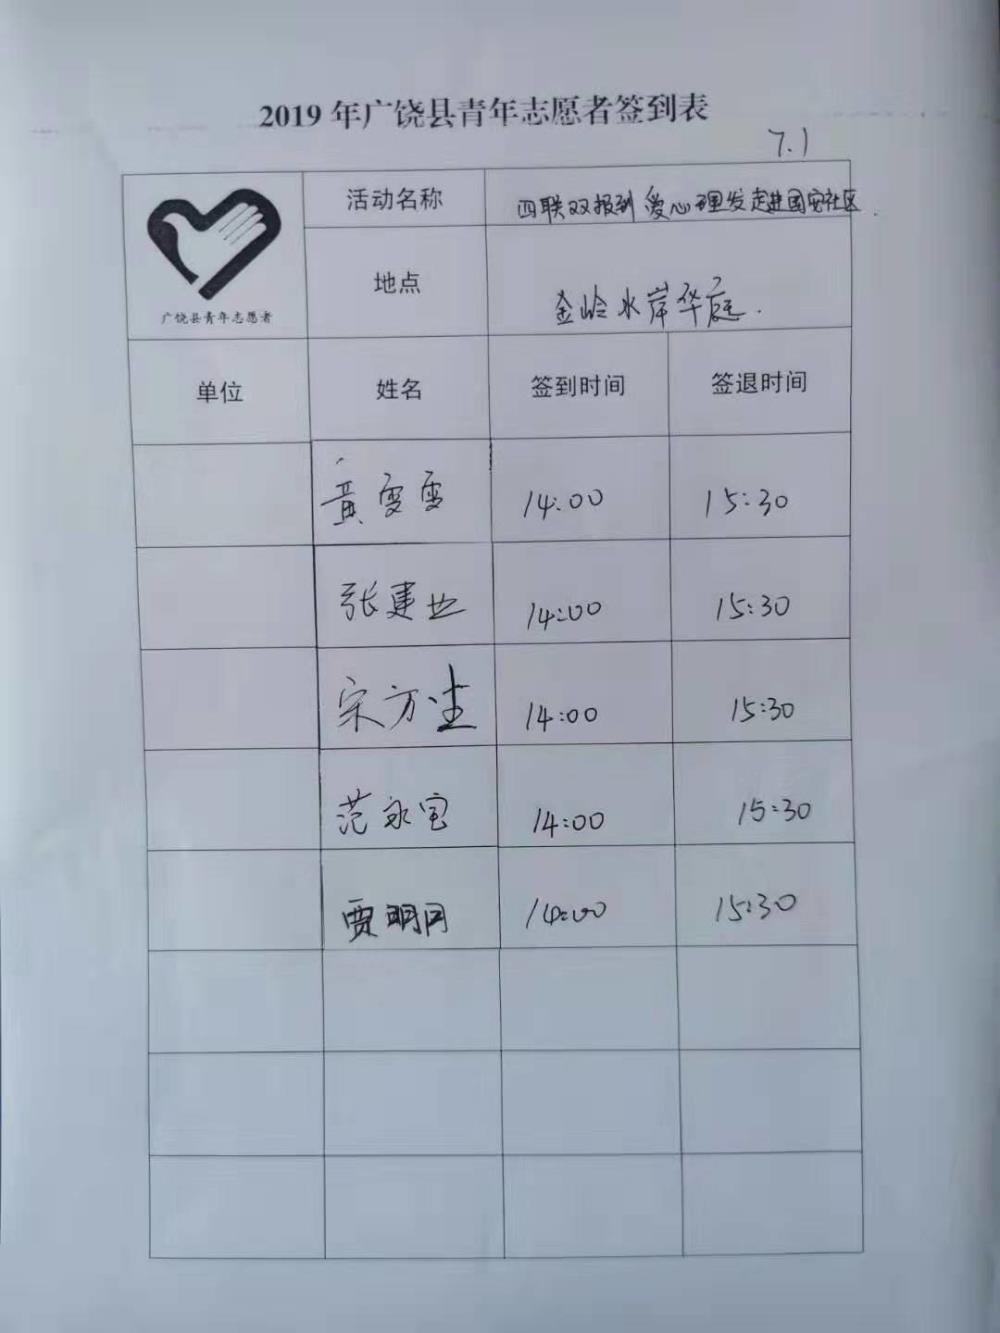 2019年广饶县青年志愿者签到表
7.1
活动名称 四联双报到 爱心理发走进国安社区.
广饶县青年志愿者
地点 金岭水岸华庭.
单位 姓名 签到时间 签退时间
黄雯雯 14:00 15:30
张建业 14:00 15:30
宋方 14:00 15:30
范永宝 14:00 15:30
贾明月 14:00 15:30